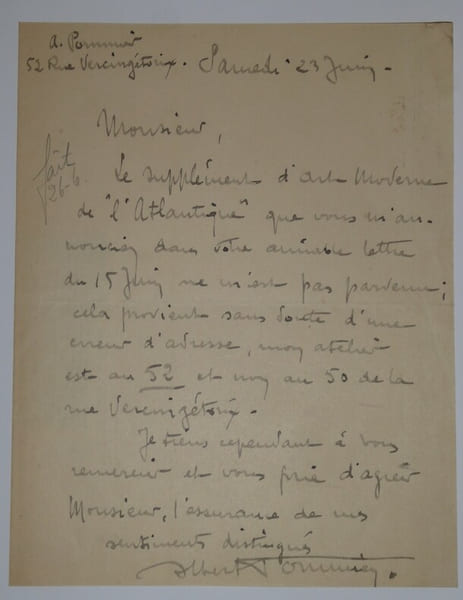 A. Pommier
52 Rue Vercingétorix. Samedi 23 Juin.
Monsieur,
fait
26-6
Le supplément d'art Moderne
de "l'Atlantique" que vous m'an-
nonciez dans votre aimable lettre
du 15 Juin ne m'est pas parvenu;
cela provient sans doute d'une
erreur d'adresse, mon atelier
est au 52 et non au 50 de la
rue Vercingétorix.
Je tiens cependant à vous
remercier et vous prie d'agréer
Monsieur, l'assurance de mes
sentiments distingués
Albert Pommier.